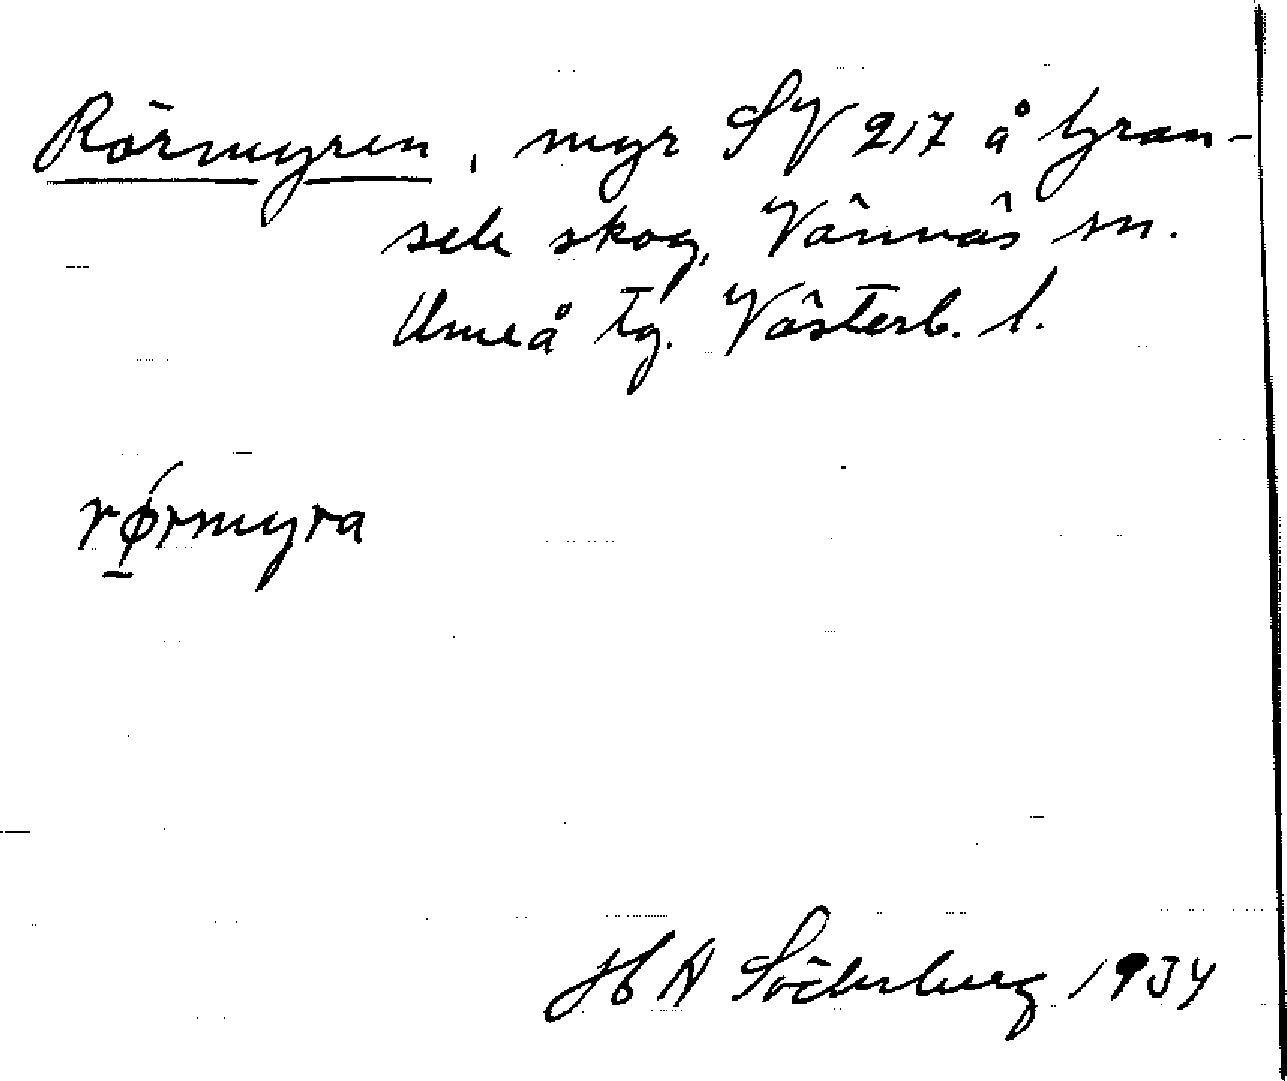 Rörmyren, myr SV 217 å Gran-
sele skog, Vännäs sn.
Umeå tg. Västerb. l.
rørmyra
H A Söderberg 1934